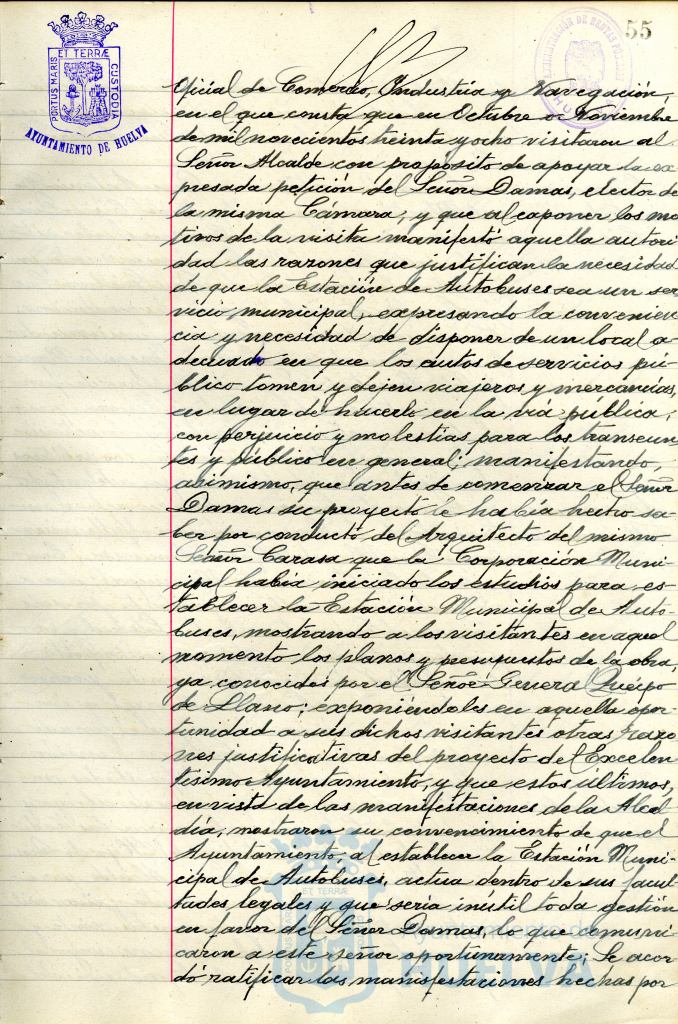 55
PORTUS MARIS ET TERRÆ CUSTODIA
AYUNTAMIENTO DE HUELVA
Oficial de Comercio, Industria y Navegación,
en el que consta que en Octubre o Noviembre
de mil novecientos treinta y ocho visitaron al
Señor Alcalde con proposito de apoyar la ex
presada petición del Señor Damas, elector de
la misma Cámara; y que al exponer los mo
tivos de la visita manifestó aquella autori
dad las razones que justifican la necesidad
de que la Estación de Autobuses sea un ser
vicio municipal, expresando la convenien
cia y necesidad de disponer de un local a
decuado en que los autos de servicios pú-
blico tomen y dejen viajeros y mercancías,
en lugar de hacerlo en la vía pública,
con perjuicio y molestias para los transeun
tes y público en general; manifestando,
asimismo, que antes de comenzar el Señor
Damas su proyecto le había hecho sa
ber por conducto del Arquitecto del mismo
Señor Carasa que la Corporación Muni-
cipal había iniciado los estudios para es-
tablecer la Estación Municipal de Auto-
buses, mostrando a los visitantes en aquel
momento los planos y presupuestos de la obra,
ya conocidos por el Señor General Queipo
de Llano; exponiéndoles en aquella opor-
tunidad a sus dichos visitantes otras razo
nes justificativas del proyecto del Excelen
tísimo Ayuntamiento, y que estos últimos,
en vista de las manifestaciones de la Alcal
día, mostraron su convencimiento de que el
Ayuntamiento, al establecer la Estación Muni-
cipal de Autobuses, actua dentro de sus facul
tades legales y que sería inutil toda gestión
en favor del Señor Damas, lo que comuni-
caron a este señor oportunamente; Se acor
dó ratificar las manifestaciones hechas por
HUELVA